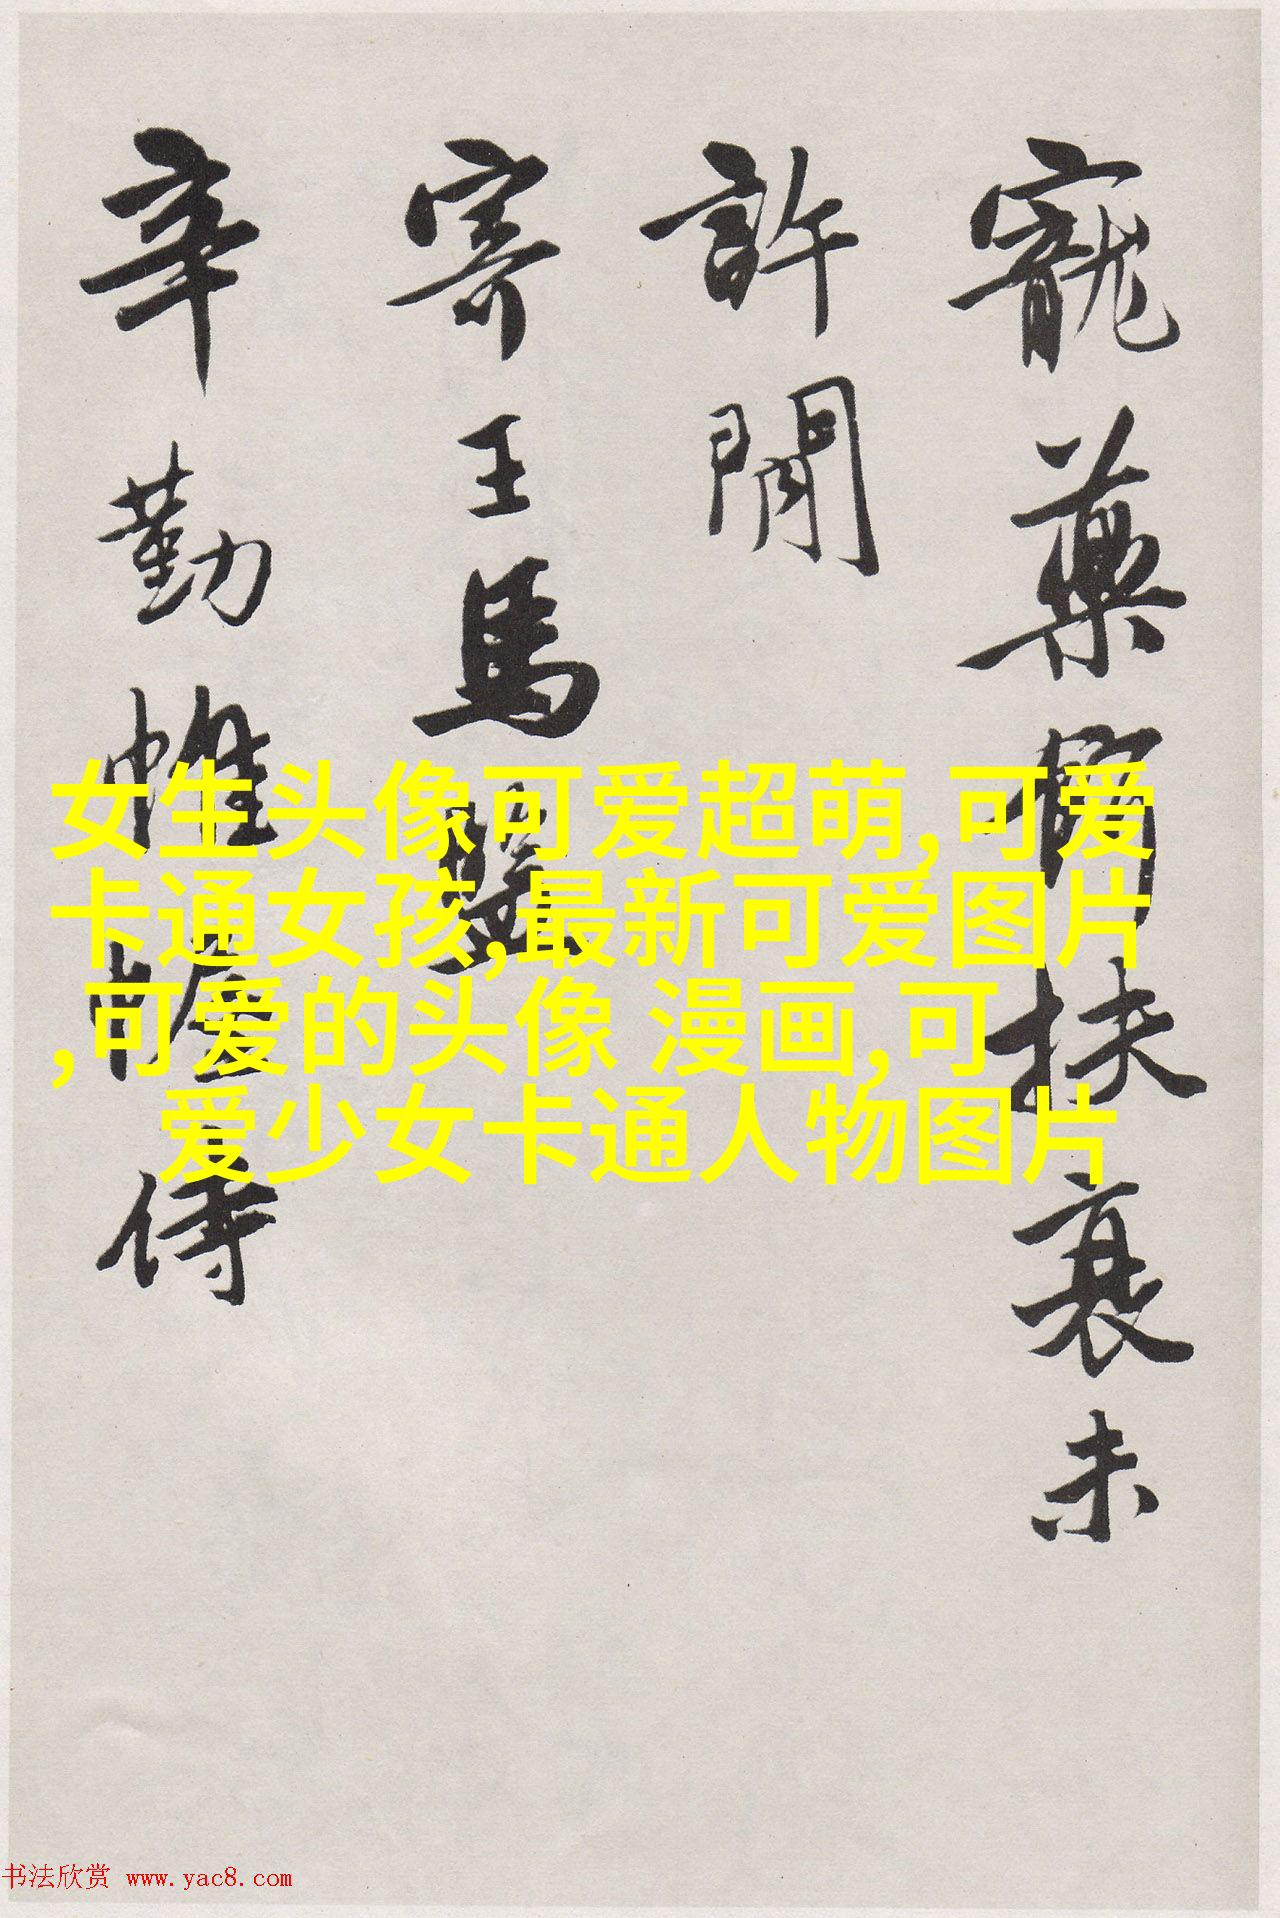 寵藥扶衰未
許閒
寄王馬
辛勤帷幄侍
女生头像可爱超萌,可爱
卡通女孩,最新可爱图片
,可爱的头像 漫画,可
爱少女卡通人物图片
书法欣赏 www.yac8.com